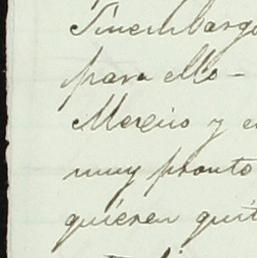 Sinembargo
para ello -
Moreno y e
muy pronto
quieren quit